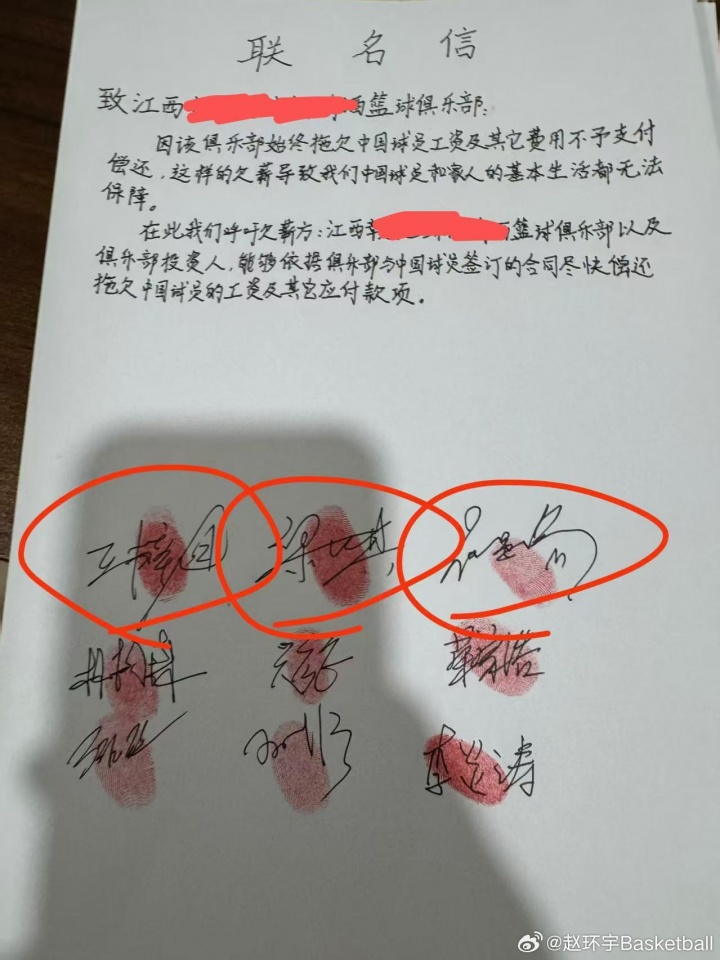 联名信
致江西 篮球俱乐部:
因该俱乐部始终拖欠中国球员工资及其它费用不予支付
偿还,这样的欠薪导致我们中国球员和家人的基本生活都无法
保障。
在此我们呼吁欠薪方:江西 篮球俱乐部以及
俱乐部投资人,能够依据俱乐部与中国球员签订的合同尽快偿还
拖欠中国球员的工资及其它应付款项。
@赵环宇Basketball